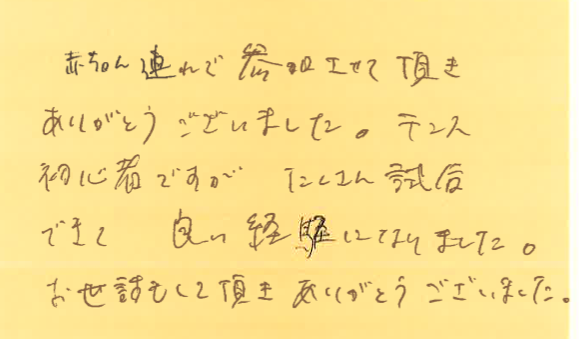 赤ちゃん連れで参加させて頂き
ありがとうございました。テニス
初心者ですが たくさん試合
できて 良い経験になりました。
お世話をして頂き ありがとうございました。